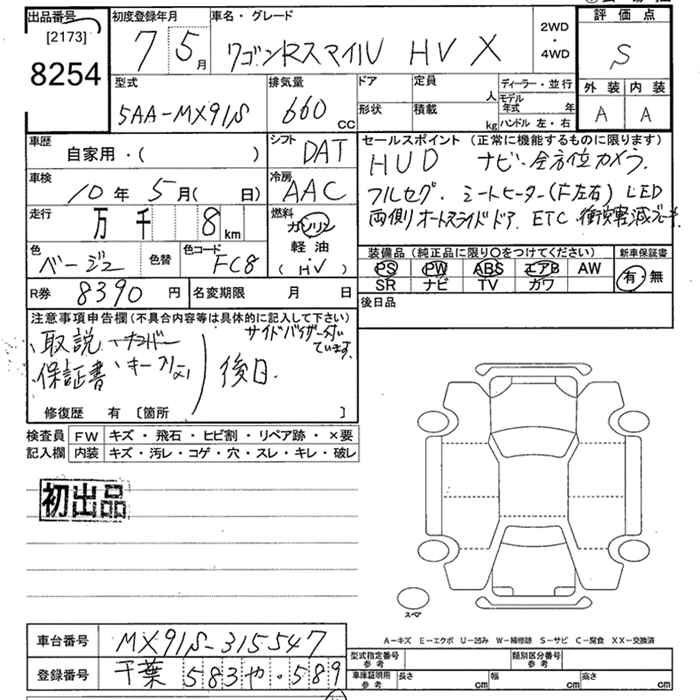 出品番号
[2173]
8254
初度登録年月
7 5月
車名・グレード
ワゴンRスマイル HV X
2WD
・
4WD
評価点
S
外装 内装
A A
型式
5AA-MX91S
排気量
660 CC
ドア
形状
定員 人
積載 kg
ディーラー・並行
モデル年式 年
ハンドル 左・右
車歴
自家用・( )
シフト
DAT
セールスポイント (正常に機能するものに限ります)
HUD ナビ・全方位カメラ.
フルセグ. シートヒーター(F左右) LED
両側オートスライドドア. ETC
車検
10年 5月( 日)
冷房
AAC
走行
万 千 8 km
燃料
ガソリン
軽油
・
( HV )
色
ベージュ
色替
色コード
FC8
装備品 (純正品に限り○をつけてください)
PS PW ABS エアB AW
SR ナビ TV カワ
新車保証書
有・無
R券 8390円
名変期限 月 日
後日品
注意事項申告欄 (不具合内容等は具体的に記入して下さい)
サイドバイザー付いています.
取説
保証書
後日.
修復歴 有 〔箇所 〕
検査員 FW キズ・飛石・ヒビ割・リペア跡・×要
記入欄 内装 キズ・汚レ・コゲ・穴・スレ・キレ・破レ
初出品
スペア
A-キズ E-エクボ U-凹み W-補修跡 S-サビ C-腐食 XX-交換済
車台番号 MX91S-315547
登録番号 千葉 583 や・589
型式指定番号 参考
類別区分番号 参考
車庫証明用 参考 長さ cm 幅 cm 高さ cm